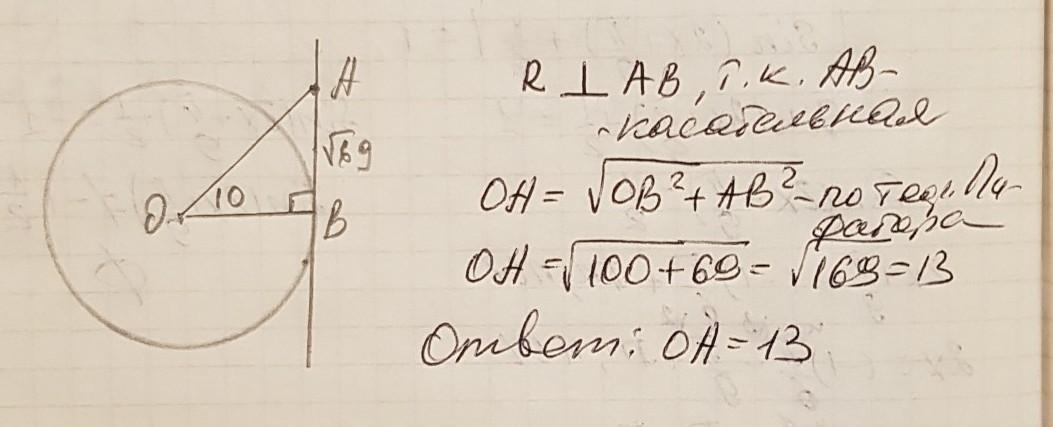 A
√69
O
10
B
R ⊥ AB, т.к. AB-
-касательная
OA = √OB²+AB² - по теор. Пи-
фагора
OA = √100+69 = √169 = 13
Ответ: OA = 13